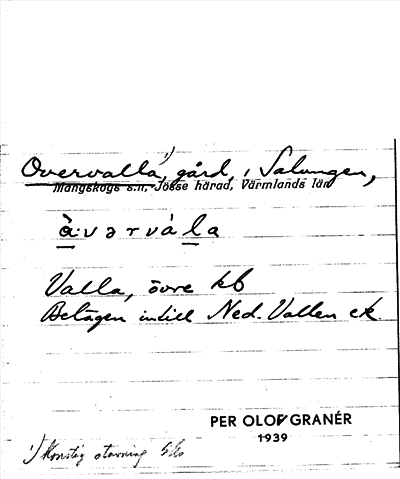 Overvalla, ¹) gård, i Salungen,
Mangskogs s:n, Jösse härad, Värmlands län
à:vərvála
Valla, övre kb
Belägen intill Ned. Vallen ek.
PER OLOF GRANÉR
1939
¹) Konstig stavning